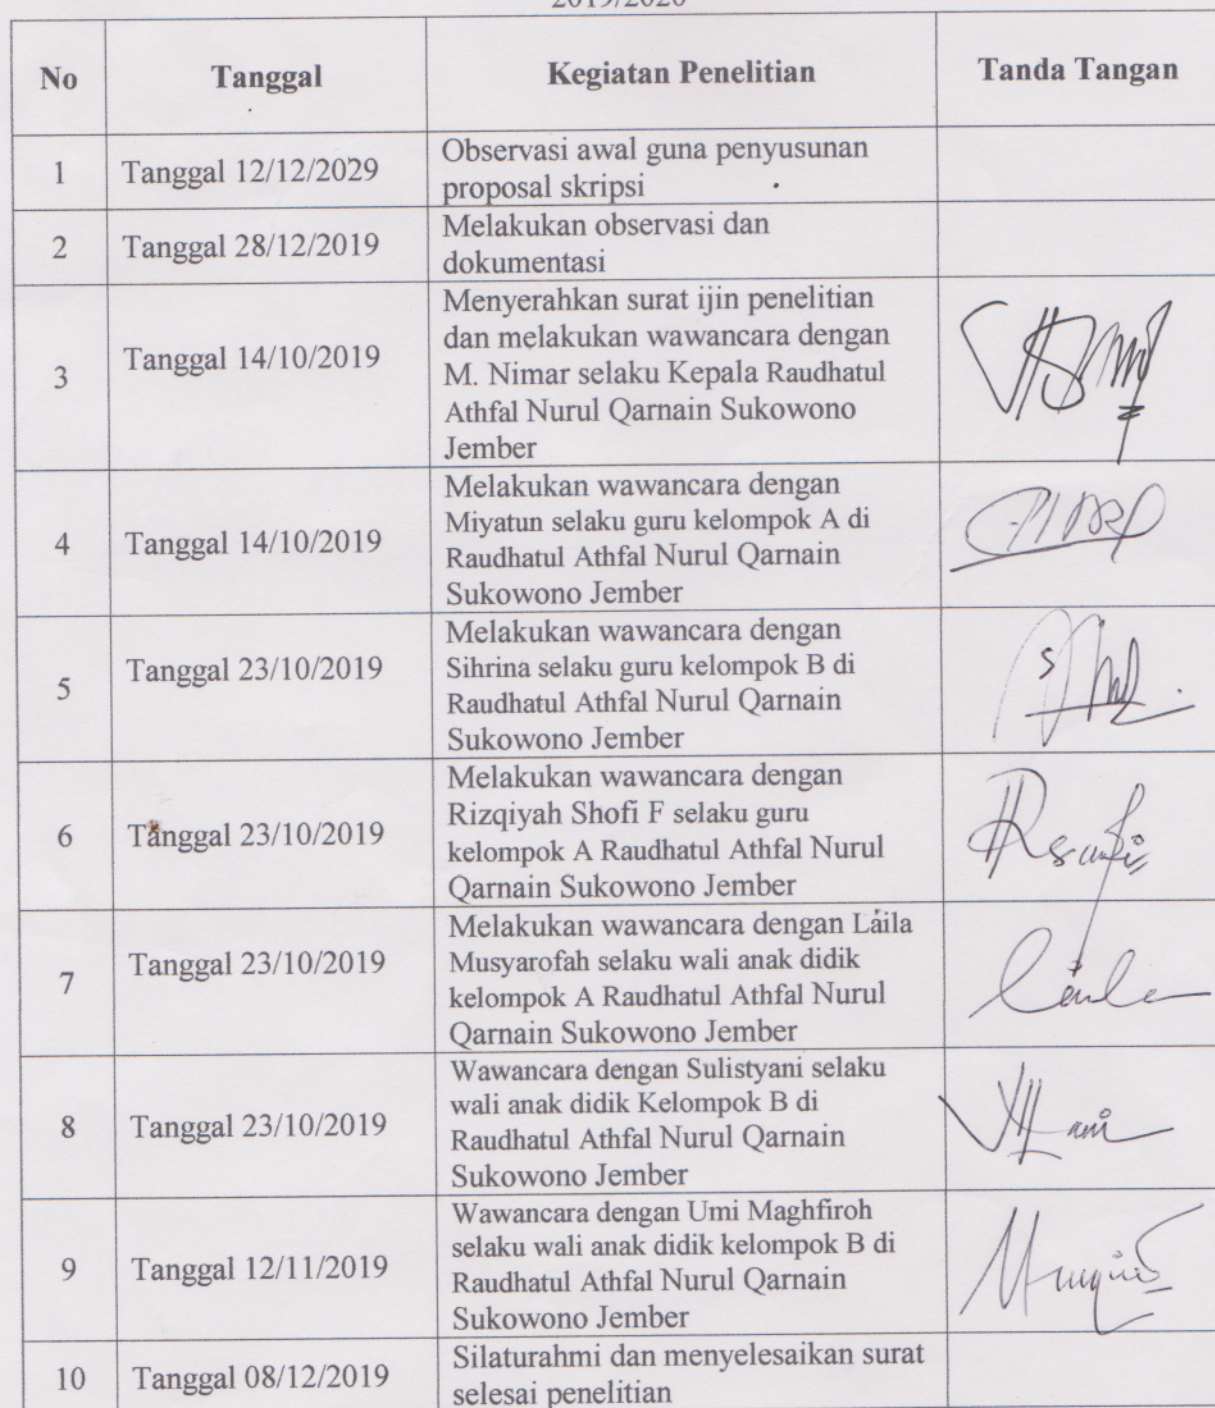 2019/2020
No
Tanggal
Kegiatan Penelitian
Tanda Tangan
1
Tanggal 12/12/2029
Observasi awal guna penyusunan
proposal skripsi
2
Tanggal 28/12/2019
Melakukan observasi dan
dokumentasi
3
Tanggal 14/10/2019
Menyerahkan surat ijin penelitian
dan melakukan wawancara dengan
M. Nimar selaku Kepala Raudhatul
Athfal Nurul Qarnain Sukowono
Jember
4
Tanggal 14/10/2019
Melakukan wawancara dengan
Miyatun selaku guru kelompok A di
Raudhatul Athfal Nurul Qarnain
Sukowono Jember
5
Tanggal 23/10/2019
Melakukan wawancara dengan
Sihrina selaku guru kelompok B di
Raudhatul Athfal Nurul Qarnain
Sukowono Jember
6
Tanggal 23/10/2019
Melakukan wawancara dengan
Rizqiyah Shofi F selaku guru
kelompok A Raudhatul Athfal Nurul
Qarnain Sukowono Jember
7
Tanggal 23/10/2019
Melakukan wawancara dengan Laila
Musyarofah selaku wali anak didik
kelompok A Raudhatul Athfal Nurul
Qarnain Sukowono Jember
8
Tanggal 23/10/2019
Wawancara dengan Sulistyani selaku
wali anak didik Kelompok B di
Raudhatul Athfal Nurul Qarnain
Sukowono Jember
9
Tanggal 12/11/2019
Wawancara dengan Umi Maghfiroh
selaku wali anak didik kelompok B di
Raudhatul Athfal Nurul Qarnain
Sukowono Jember
10
Tanggal 08/12/2019
Silaturahmi dan menyelesaikan surat
selesai penelitian